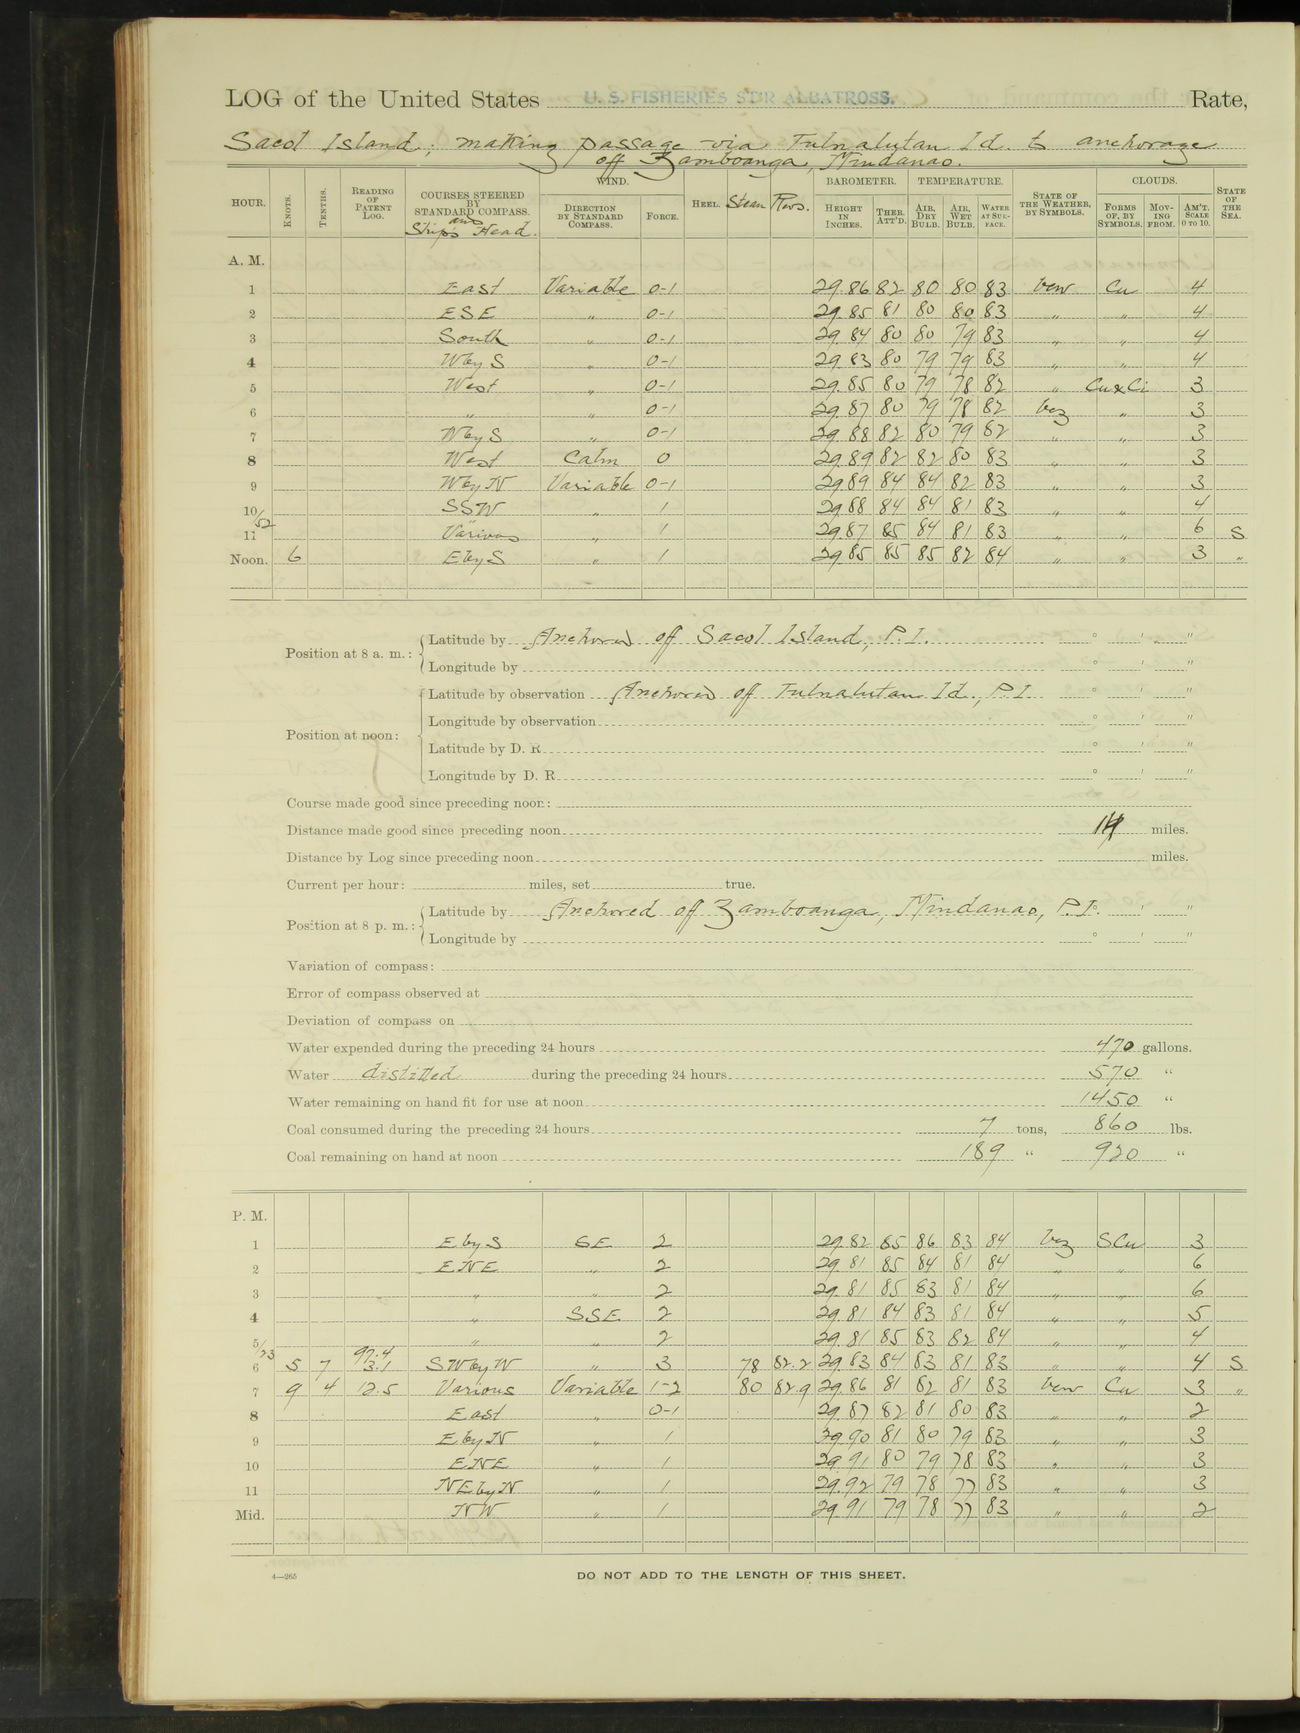 LOG of the United States U. S. FISHERIES STR ALBATROSS. Rate,
Sacol Island; making passage via Tulnalutan Id. to anchorage
off Zamboanga, Mindanao.
HOUR. KNOTS. TENTHS. READING OF PATENT LOG. COURSES STEERED BY STANDARD COMPASS. and Ship's Head. WIND. DIRECTION BY STANDARD COMPASS. FORCE. HEEL. Steam Revs. BAROMETER. HEIGHT IN INCHES. THER. ATT'D. TEMPERATURE. AIR, DRY BULB. AIR, WET BULB. WATER AT SURFACE. STATE OF THE WEATHER, BY SYMBOLS. CLOUDS. FORMS OF, BY SYMBOLS. MOVING FROM. AM'T. SCALE 0 TO 10. STATE OF THE SEA.
A. M.
1 East Variable 0-1 29.86 82 80 80 83 bcw Cu 4
2 ESE " 0-1 29.85 81 80 80 83 " " 4
3 South " 0-1 29.84 80 80 79 83 " " 4
4 WbyS " 0-1 29.83 80 79 79 83 " " 4
5 West " 0-1 29.85 80 79 78 82 " Cu & Ci 3
6 " " 0-1 29.87 80 79 78 82 bcz " 3
7 WbyS " 0-1 29.88 82 80 79 82 " " 3
8 West Calm 0 29.89 82 82 80 83 " " 3
9 WbyN Variable 0-1 29.89 84 84 82 83 " " 3
10 SSW " 1 29.88 84 84 81 83 " " 4
/52
11 Various " 1 29.87 85 84 81 83 " " 6 S
Noon. 6 EbyS " 1 29.85 85 85 82 84 " " 3 "
Position at 8 a. m.: Latitude by Anchored off Sacol Island, P.I. ° ' "
Longitude by ° ' "
Position at noon: Latitude by observation Anchored off Tulnalutan Id., P.I. ° ' "
Longitude by observation ° ' "
Latitude by D. R. ° ' "
Longitude by D. R. ° ' "
Course made good since preceding noon:
Distance made good since preceding noon miles.
Distance by Log since preceding noon miles.
Current per hour: miles, set true.
Position at 8 p. m.: Latitude by Anchored off Zamboanga, Mindanao, P.I. ° ' "
Longitude by ° ' "
Variation of compass:
Error of compass observed at
Deviation of compass on
Water expended during the preceding 24 hours 470 gallons.
Water distilled during the preceding 24 hours 570 "
Water remaining on hand fit for use at noon 1450 "
Coal consumed during the preceding 24 hours 7 tons, 860 lbs.
Coal remaining on hand at noon 189 " 920 "
P. M.
1 EbyS SE 2 29.82 85 86 83 84 bcz SCu 3
2 ENE " 2 29.81 85 84 81 84 " " 6
3 " " 2 29.81 85 83 81 84 " " 6
4 " SSE 2 29.81 84 83 81 84 " " 5
5 " " 2 29.81 85 83 82 84 " " 4
/23 97.4
6 5 7 3.1 SWbyW " 3 78 82.2 29.83 84 83 81 83 " " 4 S
7 9 4 12.5 Various Variable 1-2 80 82.9 29.86 81 82 81 83 bcw Cu 3 "
8 East " 0-1 29.87 82 81 80 83 " " 2
9 EbyN " 1 29.90 81 80 79 83 " " 3
10 ENE " 1 29.91 80 79 78 83 " " 3
11 NEbyN " 1 29.92 79 78 77 83 " " 3
Mid. NW " 1 29.91 79 78 77 83 " " 2
4—265 DO NOT ADD TO THE LENGTH OF THIS SHEET.